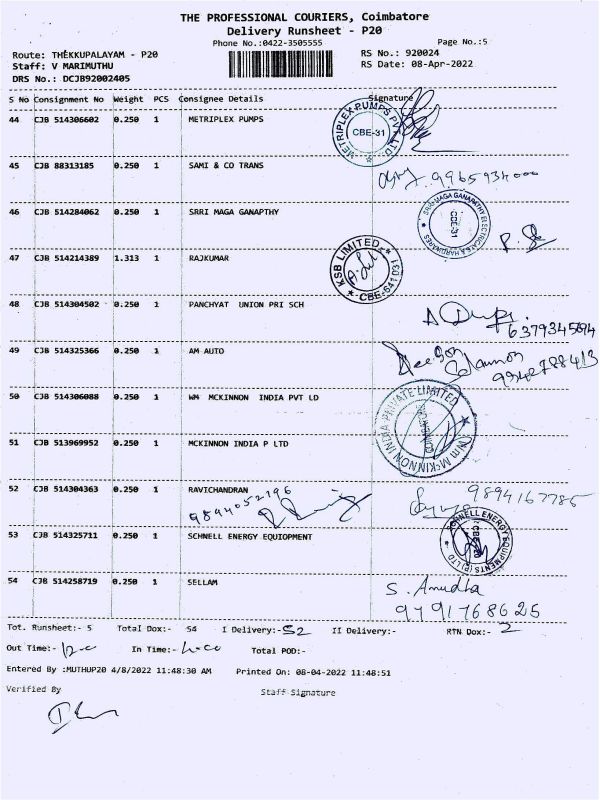 THE PROFESSIONAL COURIERS, Coimbatore
Delivery Runsheet - P20
Phone No.:0422-3505555 Page No.:5
Route: THEKKUPALAYAM - P20 RS No.: 920024
Staff: V MARIMUTHU RS Date: 08-Apr-2022
DRS No.: DCJB92002405
S No Consignment No Weight PCS Consignee Details Signature
44 CJB 514306602 0.250 1 METRIPLEX PUMPS
METRIPLEX PUMPS PVT LTD. CBE-31
45 CJB 88313185 0.250 1 SAMI & CO TRANS
9965934000
46 CJB 514284062 0.250 1 SRRI MAGA GANAPTHY
SRRI MAGA GANAPATHY ELECTRICALS & HARDWARES CBE-31
47 CJB 514214389 1.313 1 RAJKUMAR
KSB LIMITED CBE-641031
48 CJB 514304502 0.250 1 PANCHYAT UNION PRI SCH
6379345694
49 CJB 514325366 0.250 1 AM AUTO
9942788413
50 CJB 514306088 0.250 1 WM MCKINNON INDIA PVT LD
(Wm McKINNON INDIA PRIVATE LIMITED
51 CJB 513969952 0.250 1 MCKINNON INDIA P LTD
52 CJB 514304363 0.250 1 RAVICHANDRAN
9894052196 9894167785
53 CJB 514325711 0.250 1 SCHNELL ENERGY EQUIOPMENT
SCHNELL ENERGY EQUIPMENTS (P) LTD
54 CJB 514258719 0.250 1 SELLAM
S. Anudha
9791768625
Tot. Runsheet:- 5 Total Dox:- 54 I Delivery:- 52 II Delivery:- RTN Dox:- 2
Out Time:- In Time:- Total POD:-
Entered By :MUTHUP20 4/8/2022 11:48:30 AM Printed On: 08-04-2022 11:48:51
Verified By Staff Signature